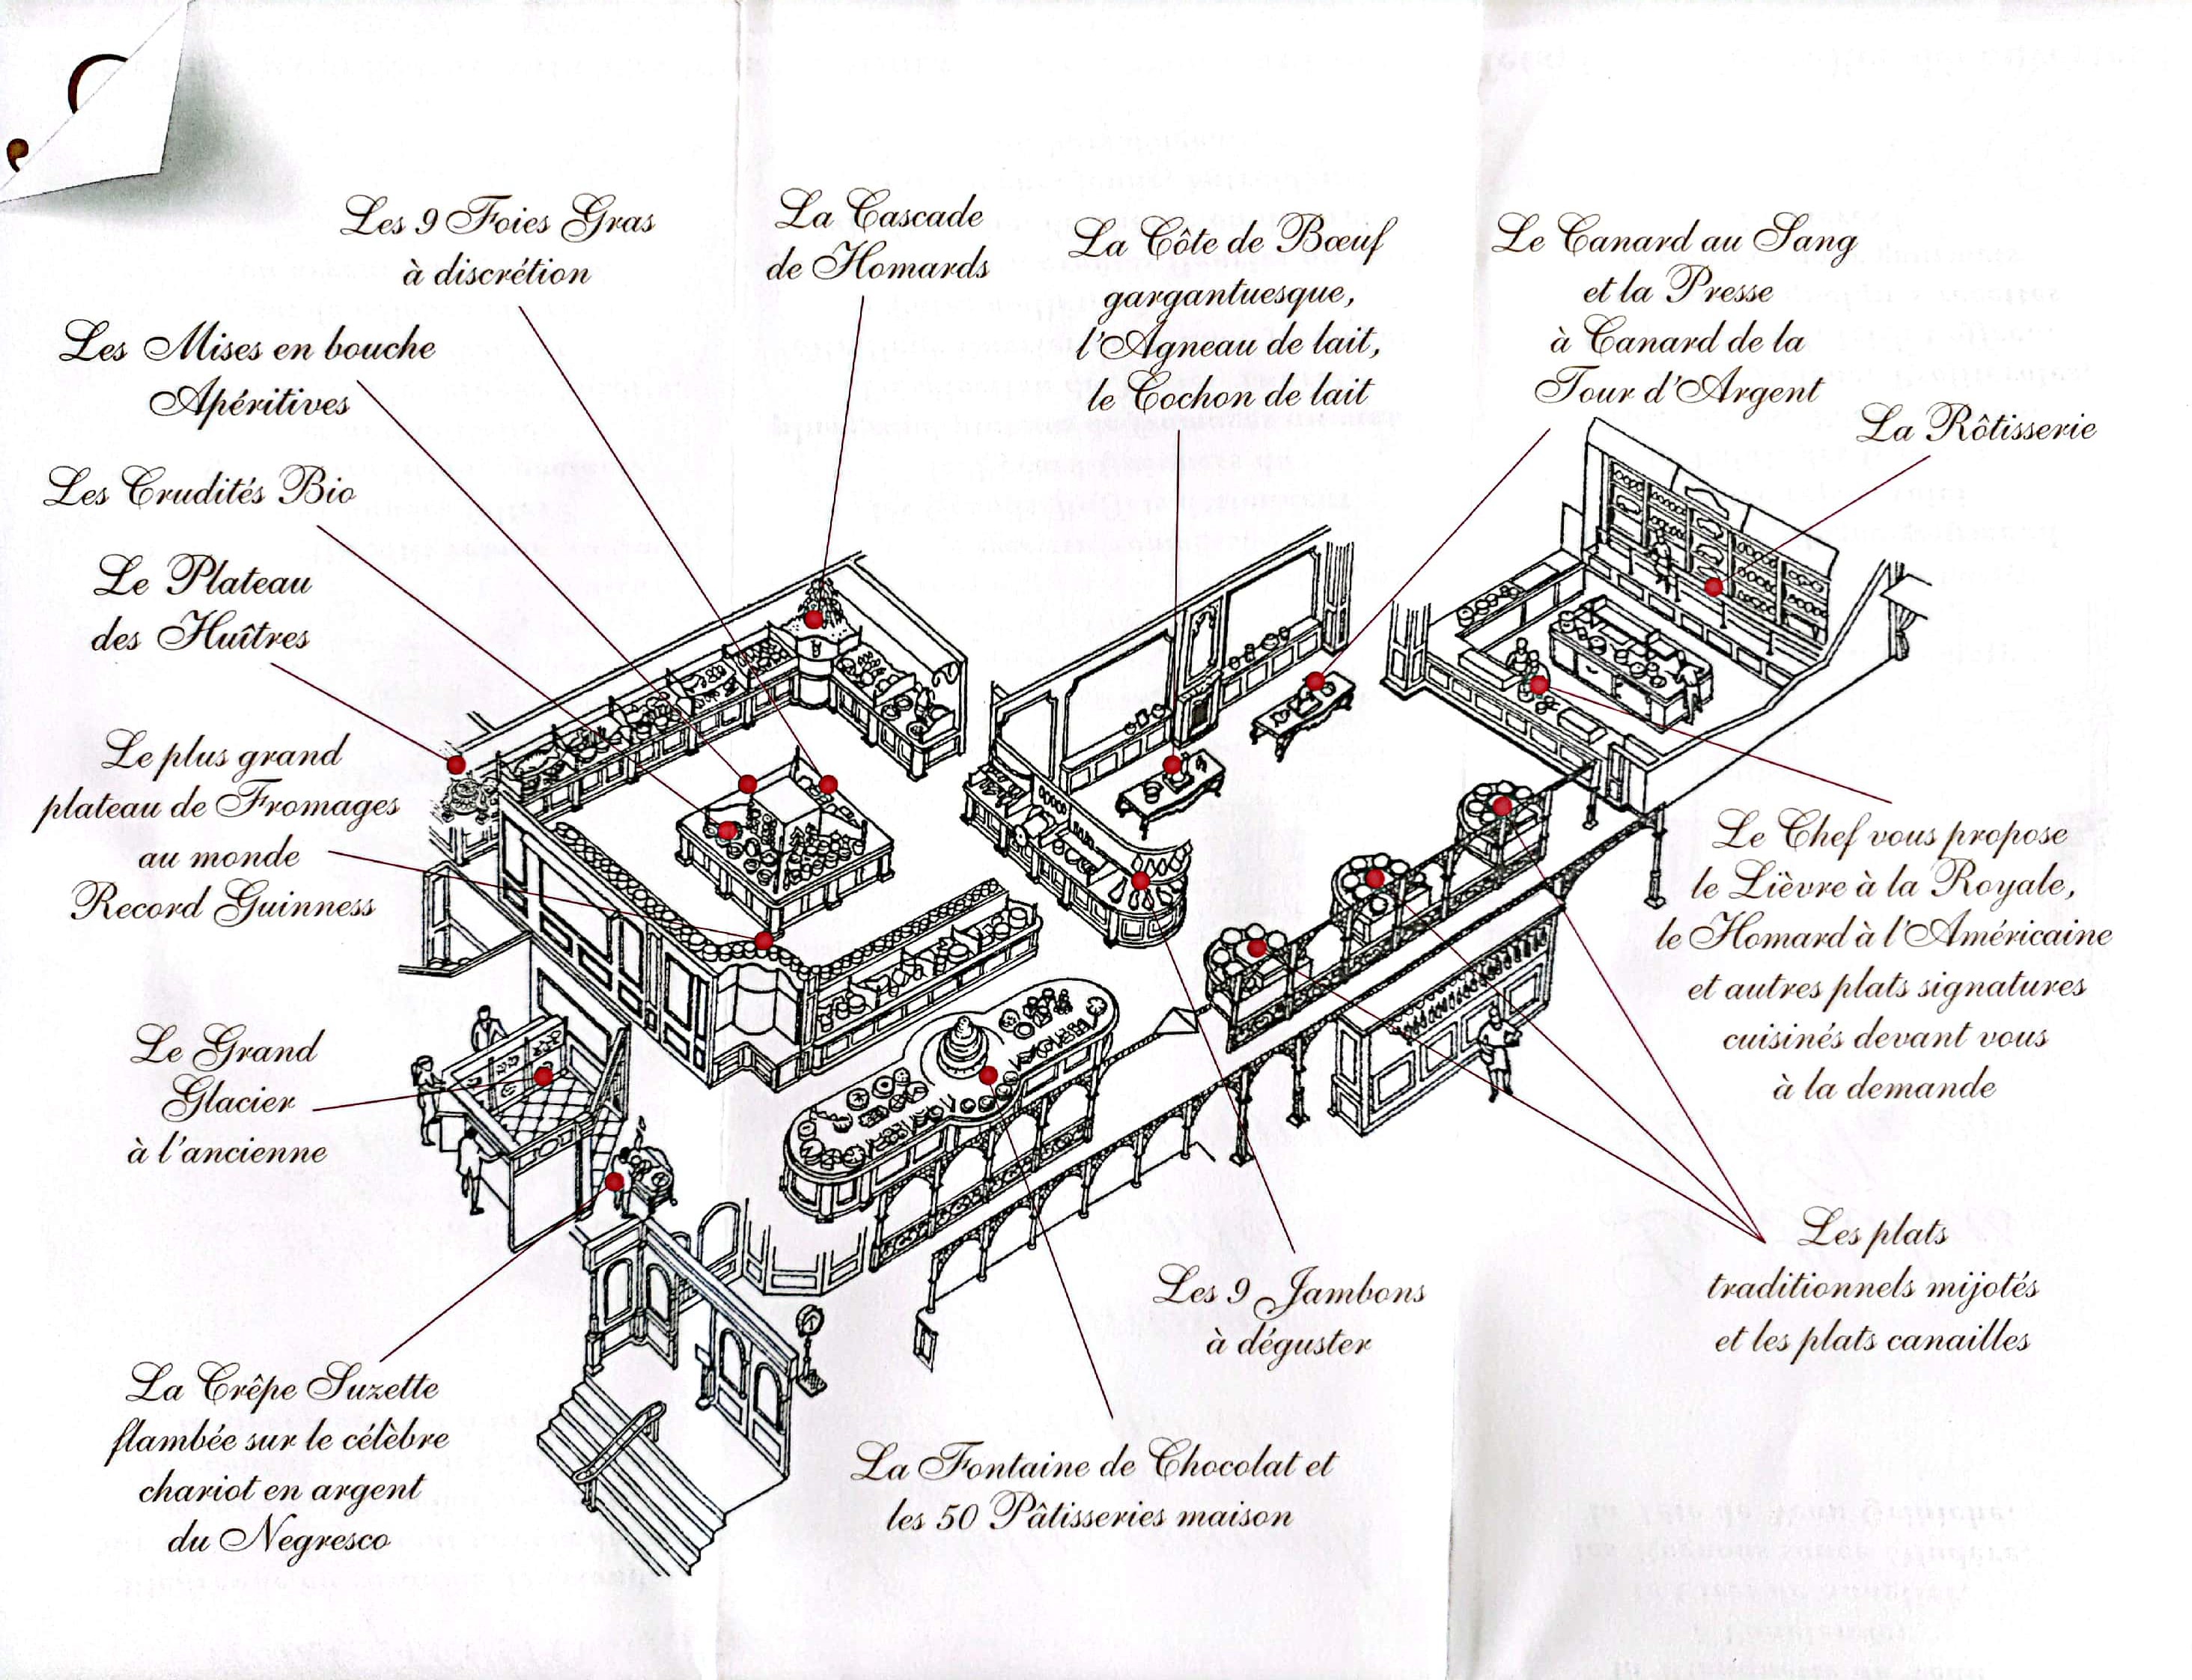 Les 9 Foies Gras
à discrétion
La Cascade
de Homards
La Côte de Bœuf
gargantuesque,
l'Agneau de lait,
le Cochon de lait
Le Canard au Sang
et la Presse
à Canard de la
Tour d'Argent
La Rôtisserie
Les Mises en bouche
Apéritives
Les Crudités Bio
Le Plateau
des Huîtres
Le plus grand
plateau de Fromages
au monde
Record Guinness
Le Grand
Glacier
à l'ancienne
La Crêpe Suzette
flambée sur le célèbre
chariot en argent
du Negresco
La Fontaine de Chocolat et
les 50 Pâtisseries maison
Les 9 Jambons
à déguster
Le Chef vous propose
le Lièvre à la Royale,
le Homard à l'Américaine
et autres plats signatures
cuisinés devant vous
à la demande
Les plats
traditionnels mijotés
et les plats canailles